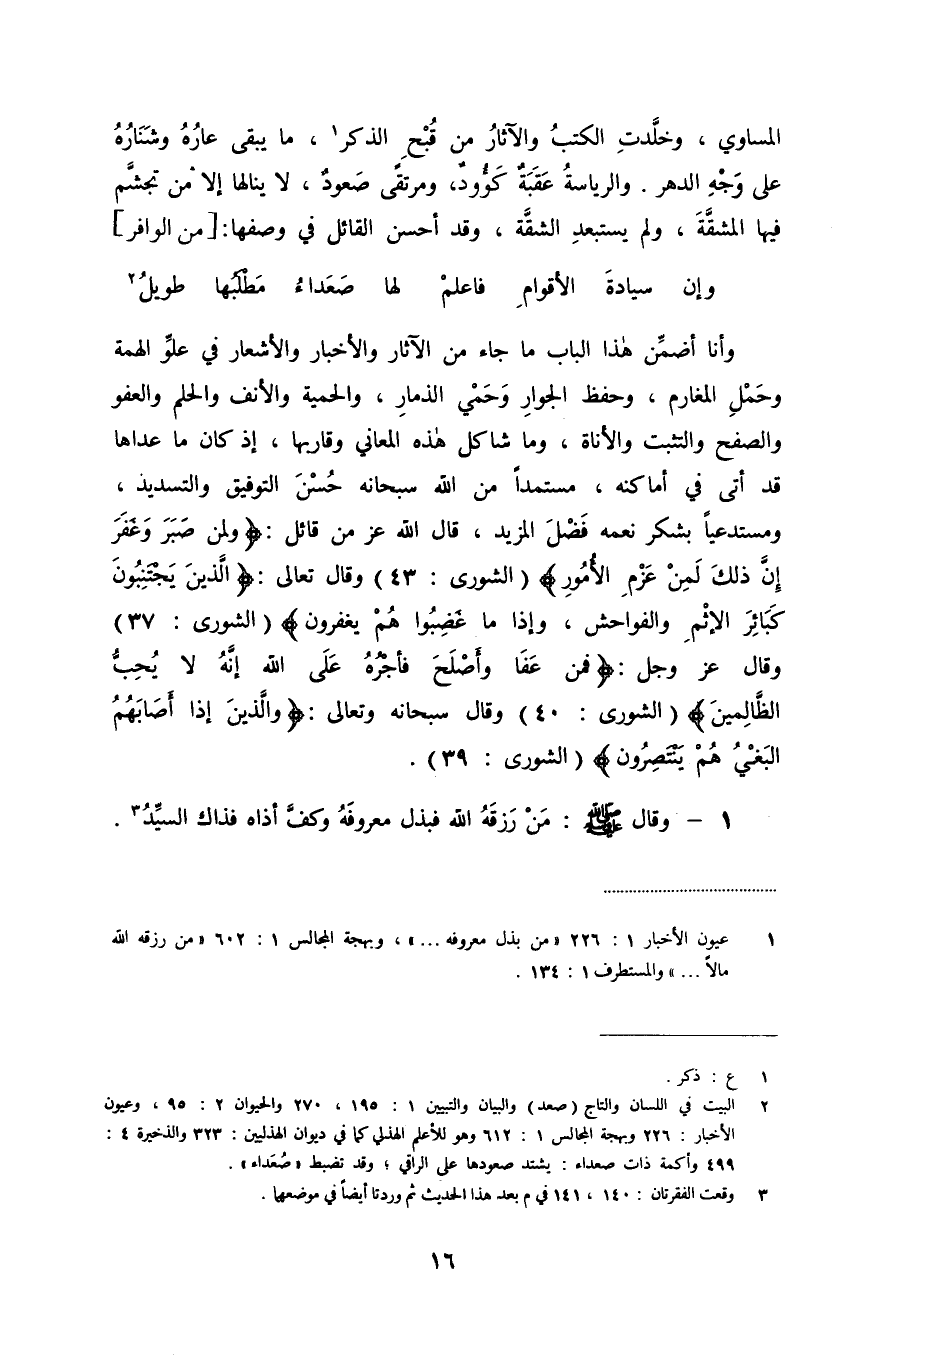 المساوي ، وخلَّدتِ الكتبُ والآثارُ من قُبْحِ الذكر١ ، ما يبقى عارُهُ وشَنَارُهُ
على وَجْهِ الدهر . والرياسةُ عَقَبَةٌ كَؤُودٌ، ومرتقًى صَعودٌ ، لا ينالها إلا من تجشَّم
فيها المشقَّةَ ، ولم يستبعدِ الشقَّة ، وقد أحسن القائل في وصفها:[من الوافر]
وإن سيادةَ الأقوامِ فاعلمْ لها صَعَداءُ مَطْلَبُها طويلُ٢
وأنا أضمِّن هٰذا الباب ما جاء من الآثار والأخبار والأشعار في علوِّ الهمة
وحَمْلِ المغارم ، وحفظ الجوارِ وَحَمْي الذمارِ ، والحمية والأنف والحلم والعفو
والصفح والتثبت والأناة ، وما شاكل هٰذه المعاني وقاربها ، إذ كان ما عداها
قد أتى في أماكنه ، مستمداً من الله سبحانه حُسْنَ التوفيق والتسديد ،
ومستدعياً بشكر نعمه فَضْلَ المزيد ، قال الله عز من قائل :﴿ ولمن صَبَرَ وَغَفَرَ
إِنَّ ذلكَ لَمِنْ عَزْمِ الأُمُورِ﴾ (الشورى : ٤٣) وقال تعالى :﴿ الَّذينَ يَجْتَنِبُونَ
كَبَائِرَ الإثْمِ والفواحش ، وإذا ما غَضِبُوا هُمْ يغفرون﴾ (الشورى : ٣٧)
وقال عز وجل :﴿ فمن عَفَا وأَصْلَحَ فأجْرُهُ عَلَى الله إنَّهُ لا يُحِبُّ
الظَّالِمينَ﴾ (الشورى : ٤٠) وقال سبحانه وتعالى :﴿ والَّذينَ إذا أَصَابَهُمُ
البَغْيُ هُمْ يَنْتَصِرُون﴾ (الشورى : ٣٩) .
١ - وقال ﷺ : مَنْ رَزقَهُ الله فبذل معروفَهُ وكفَّ أذاه فذاك السيِّدُ٣ .
١ عيون الأخبار ١ : ٢٢٦ «من بذل معروفه ...» ، وبهجة المجالس ١ : ٦٠٢ «من رزقه الله
مالاً ...» والمستطرف ١ : ١٣٤ .
١ ع : ذكر .
٢ البيت في اللسان والتاج (صعد) والبيان والتبيين ١ : ١٩٥ ، ٢٧٠ والحيوان ٢ : ٩٥ ، وعيون
الأخبار : ٢٢٦ وبهجة المجالس ١ : ٦١٢ وهو للأعلم الهذلي كما في ديوان الهذليين : ٣٢٣ والذخيرة ٤ :
٤٩٩ وأكمة ذات صعداء : يشتد صعودها على الراقي ؛ وقد تضبط «صُعَداء» .
٣ وقعت الفقرتان : ١٤٠ ، ١٤١ في م بعد هذا الحديث ثم وردتا أيضاً في موضعها .
١٦